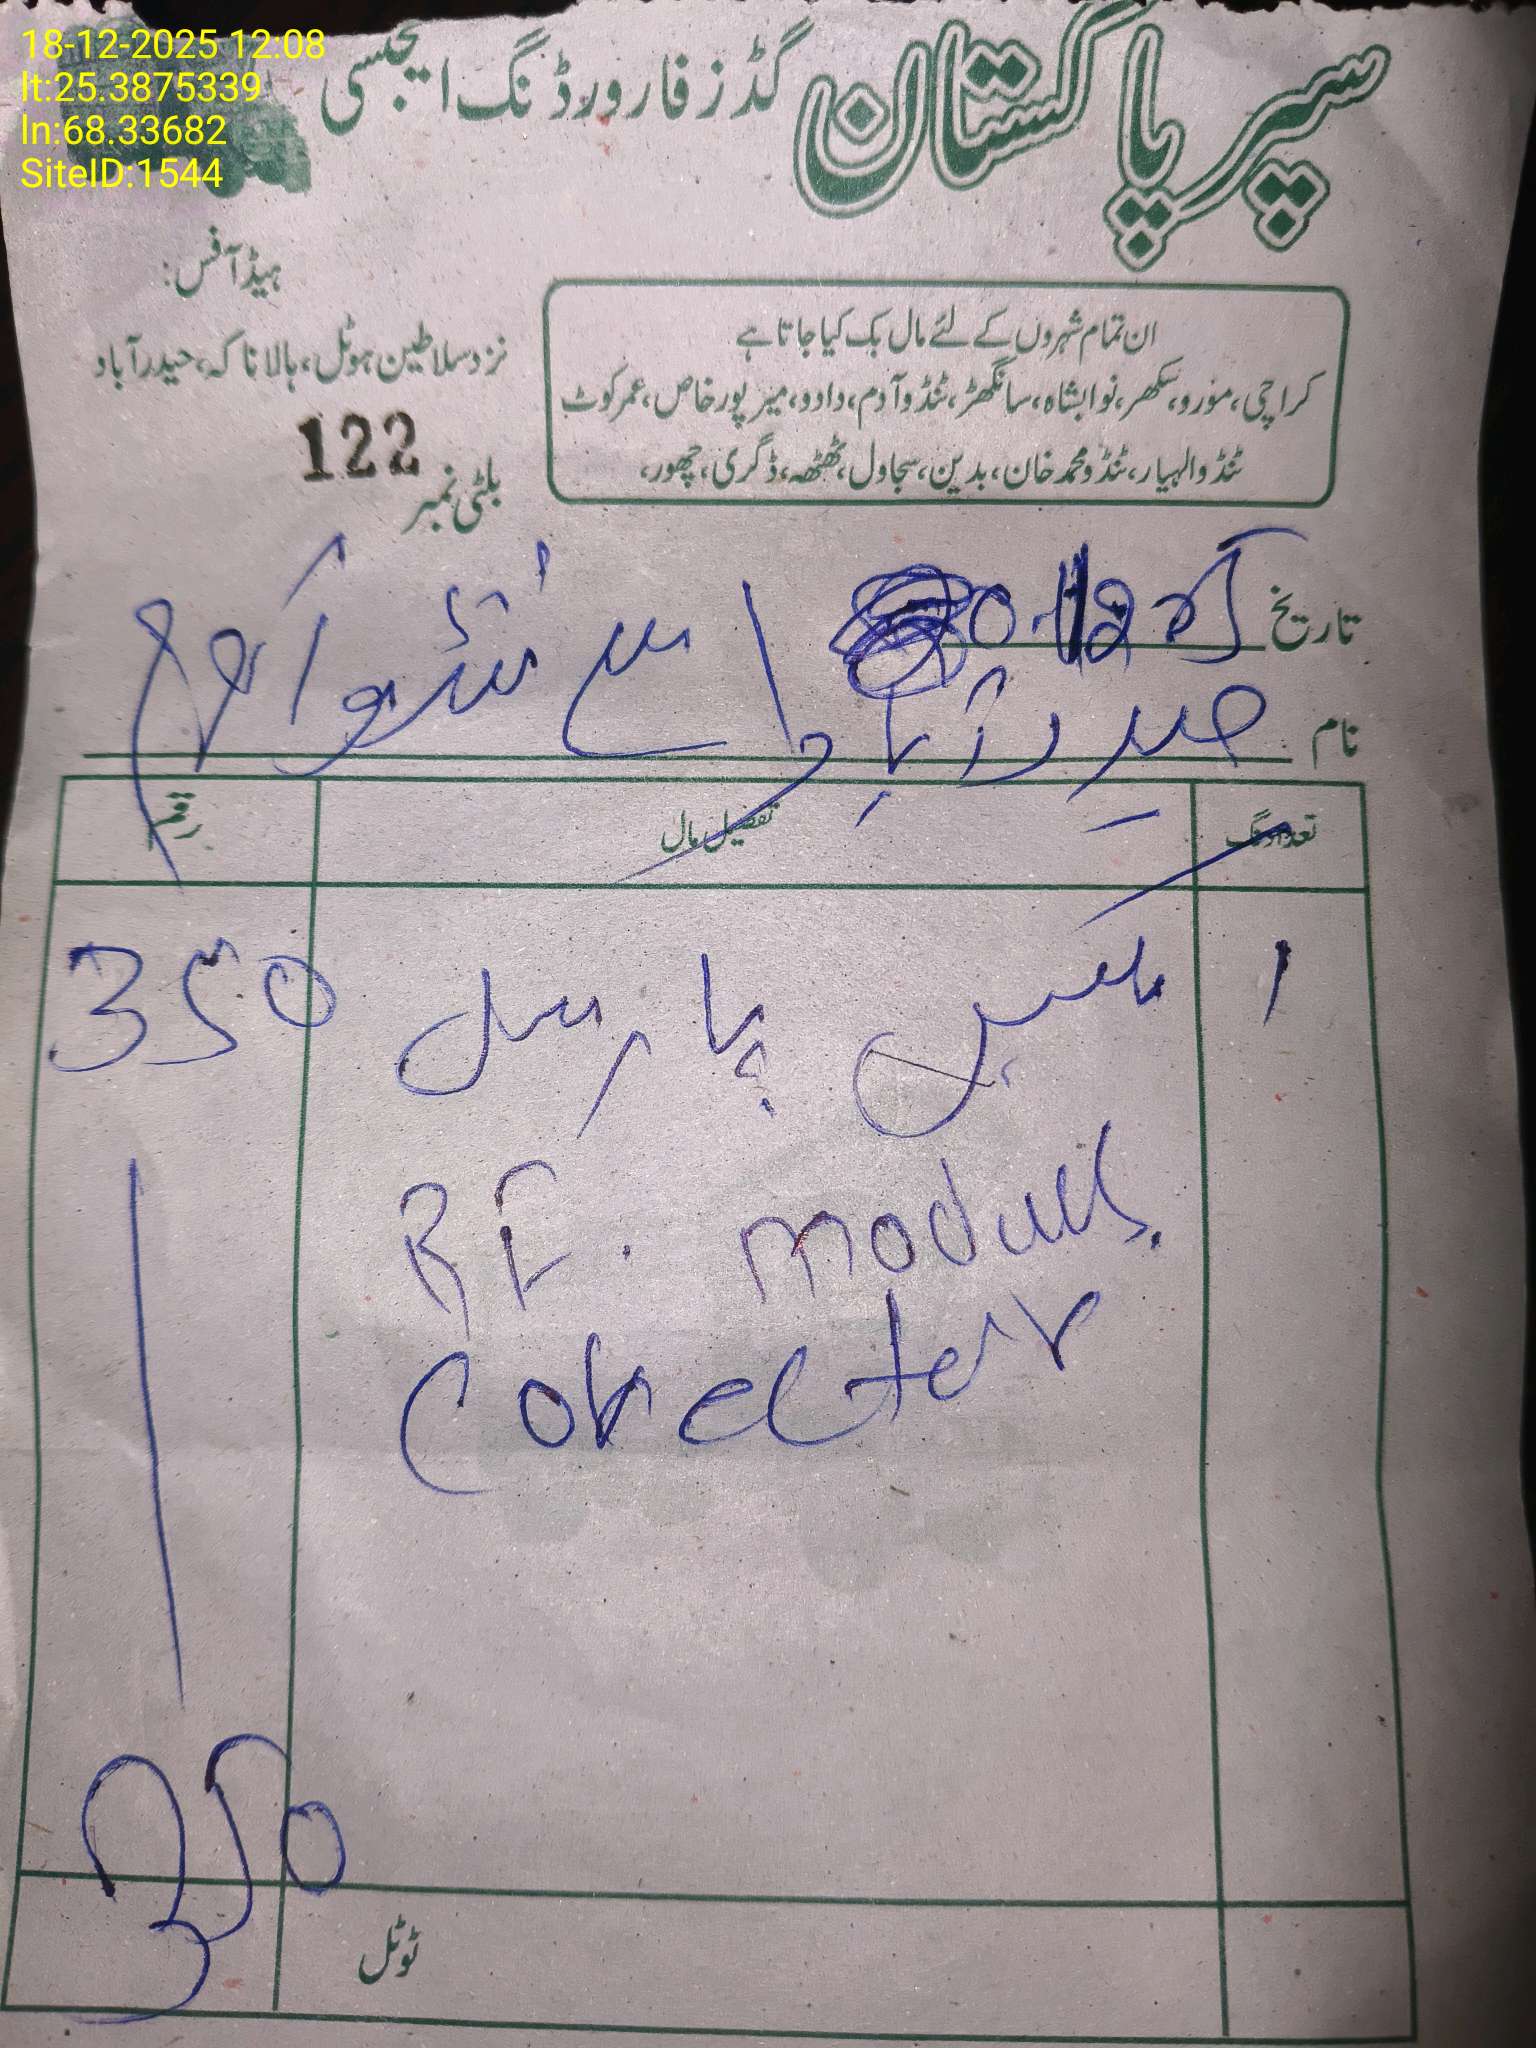 18-12-2025 12:08
lt:25.3875339
ln:68.33682
SiteID:1544
سپر پاکستان گڈز فارورڈنگ ایجنسی
ہیڈ آفس:
نزد سلاطین ہوٹل، ہالا ناکہ، حیدرآباد
ان تمام شہروں کے لئے مال بک کیا جاتا ہے
کراچی، مورو، سکھر، نوابشاہ، سانگھڑ، ٹنڈو آدم، دادو، میرپور خاص، عمر کوٹ
ٹنڈوالہیار، ٹنڈو محمد خان، بدین، سجاول، ٹھٹھہ، ڈگری، چھور،
بلٹی نمبر 122
تاریخ
نام حیدرآباد سے ٹنڈو آدم
تعداد نگ تفصیل مال رقم
1 پارسل 350
RF. modules
Conecter
350
ٹوٹل